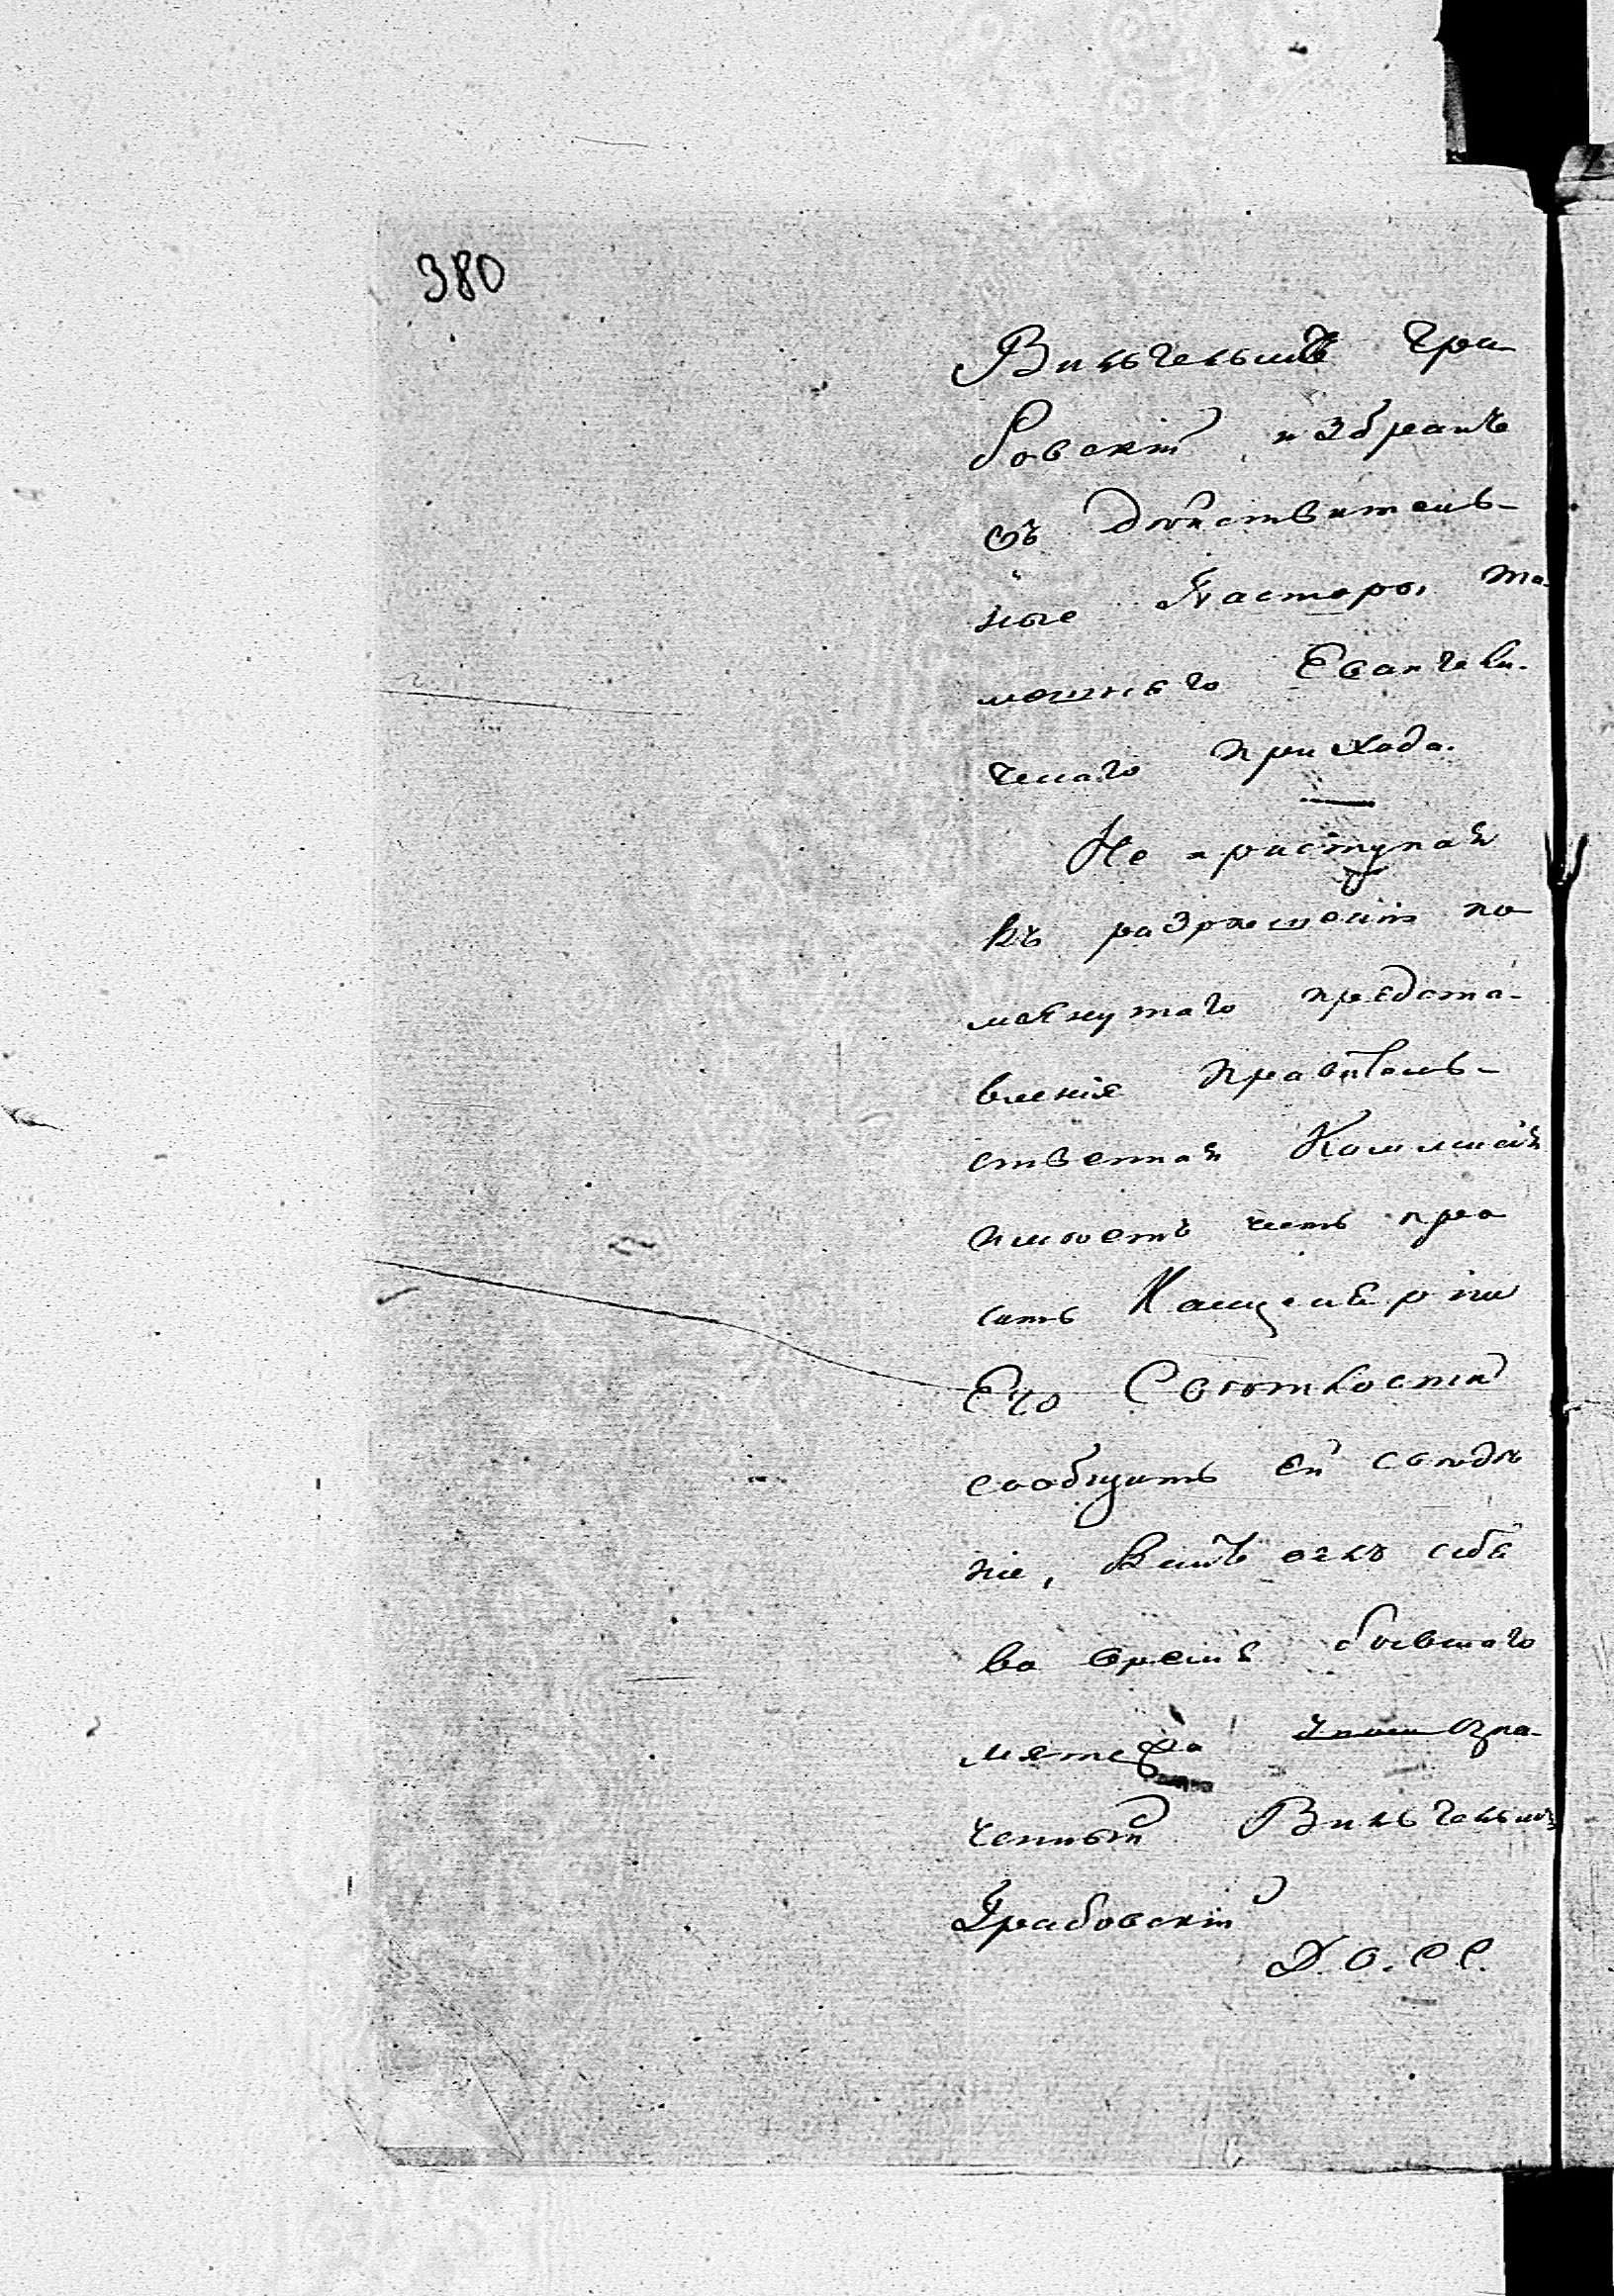 380
Вильгельмъ Гра
бовскій избранъ
въ дѣйствитель-
ные Пасторы та-
мошняго Евангели-
ческаго прихода.
Не приступая
къ разрѣшенію по
мянутаго предста-
вленія Правитель-
ственная Коммисія
имѣетъ честь про
сить Канцелярію
Его Свѣтлости
сообщить ей свѣдѣ
ніе, какъ велъ себя
во время бывшаго
мятежа озна-
ченный Вильгельмъ
Грабовскій